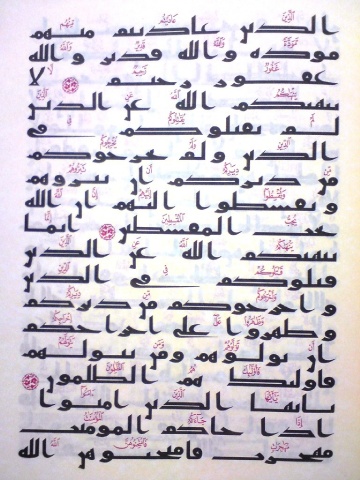 الذين عاديتم منهم
مودة والله قدير والله
غفور رحيم لا
ينهيكم الله عن الذين
لم يقتلوكم في
الدين ولم يخرجوكم
من ديركم أن تبروهم
وتقسطوا إليهم إن الله
يحب المقسطين إنما
ينهيكم الله عن الذين
قتلوكم في الدين
وأخرجوكم من ديركم
وظهروا على إخراجكم
أن تولوهم ومن يتولهم
فأولئك هم الظلمون
يأيها الذين ءامنوا
إذا جاءكم المؤمنت
مهجرت فامتحنوهن الله